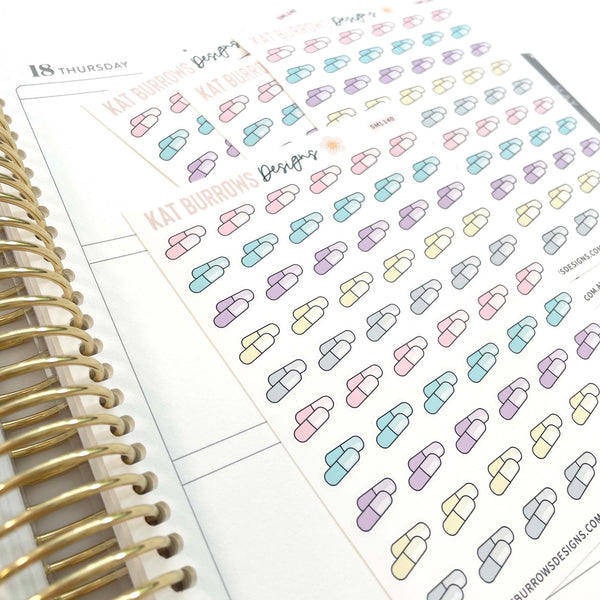 18 THURSDAY
KAT BURROWS Designs
KAT BURROWS Designs
KAT BURROWS Designs
SML140
KAT BURROWS Designs
SDESIGNS.COM
.COM.A
BURROWSDESIGNS.COM